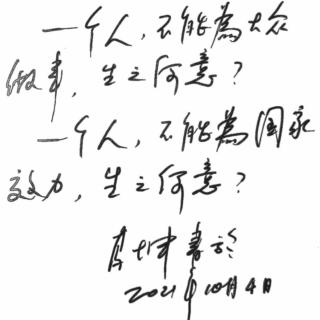 一个人，不能為大众
做事，生之何意？
一个人，不能為国家
效力，生之何意？
坤書於
2021年10月4日